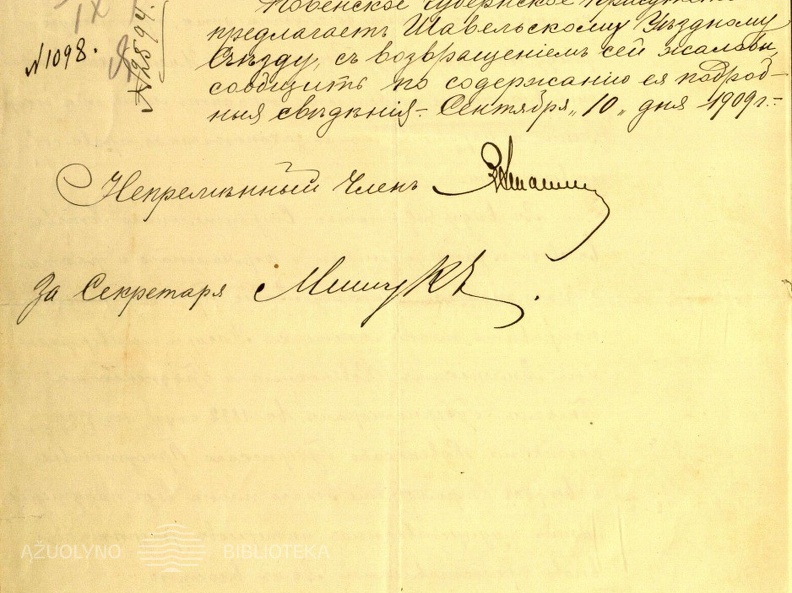 Ковенское Губернское Присутств
предлагаетъ Шавельскому Уѣздному
Съѣзду, съ возвращеніемъ сей жалобы,
сообщить по содержанію ея подроб-
ныя свѣдѣнія. Сентября „10„ дня 1909 г.
№1098.
IX
№2894.
Непремѣнный Членъ
За Секретаря Мищукъ.
AŽUOLYNO BIBLIOTEKA